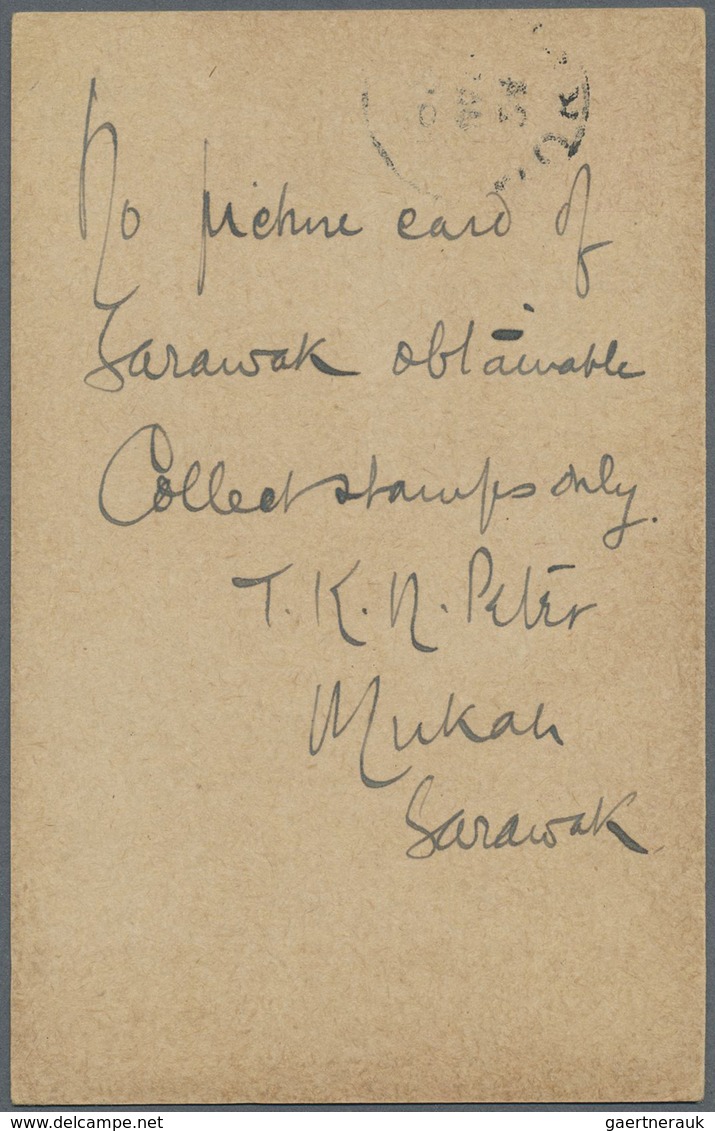 No picture card of
Sarawak obtainable
Collect stamps only.
T. K. N. Peter
Mukah
Sarawak
www.delcampe.net
gaertnerauk